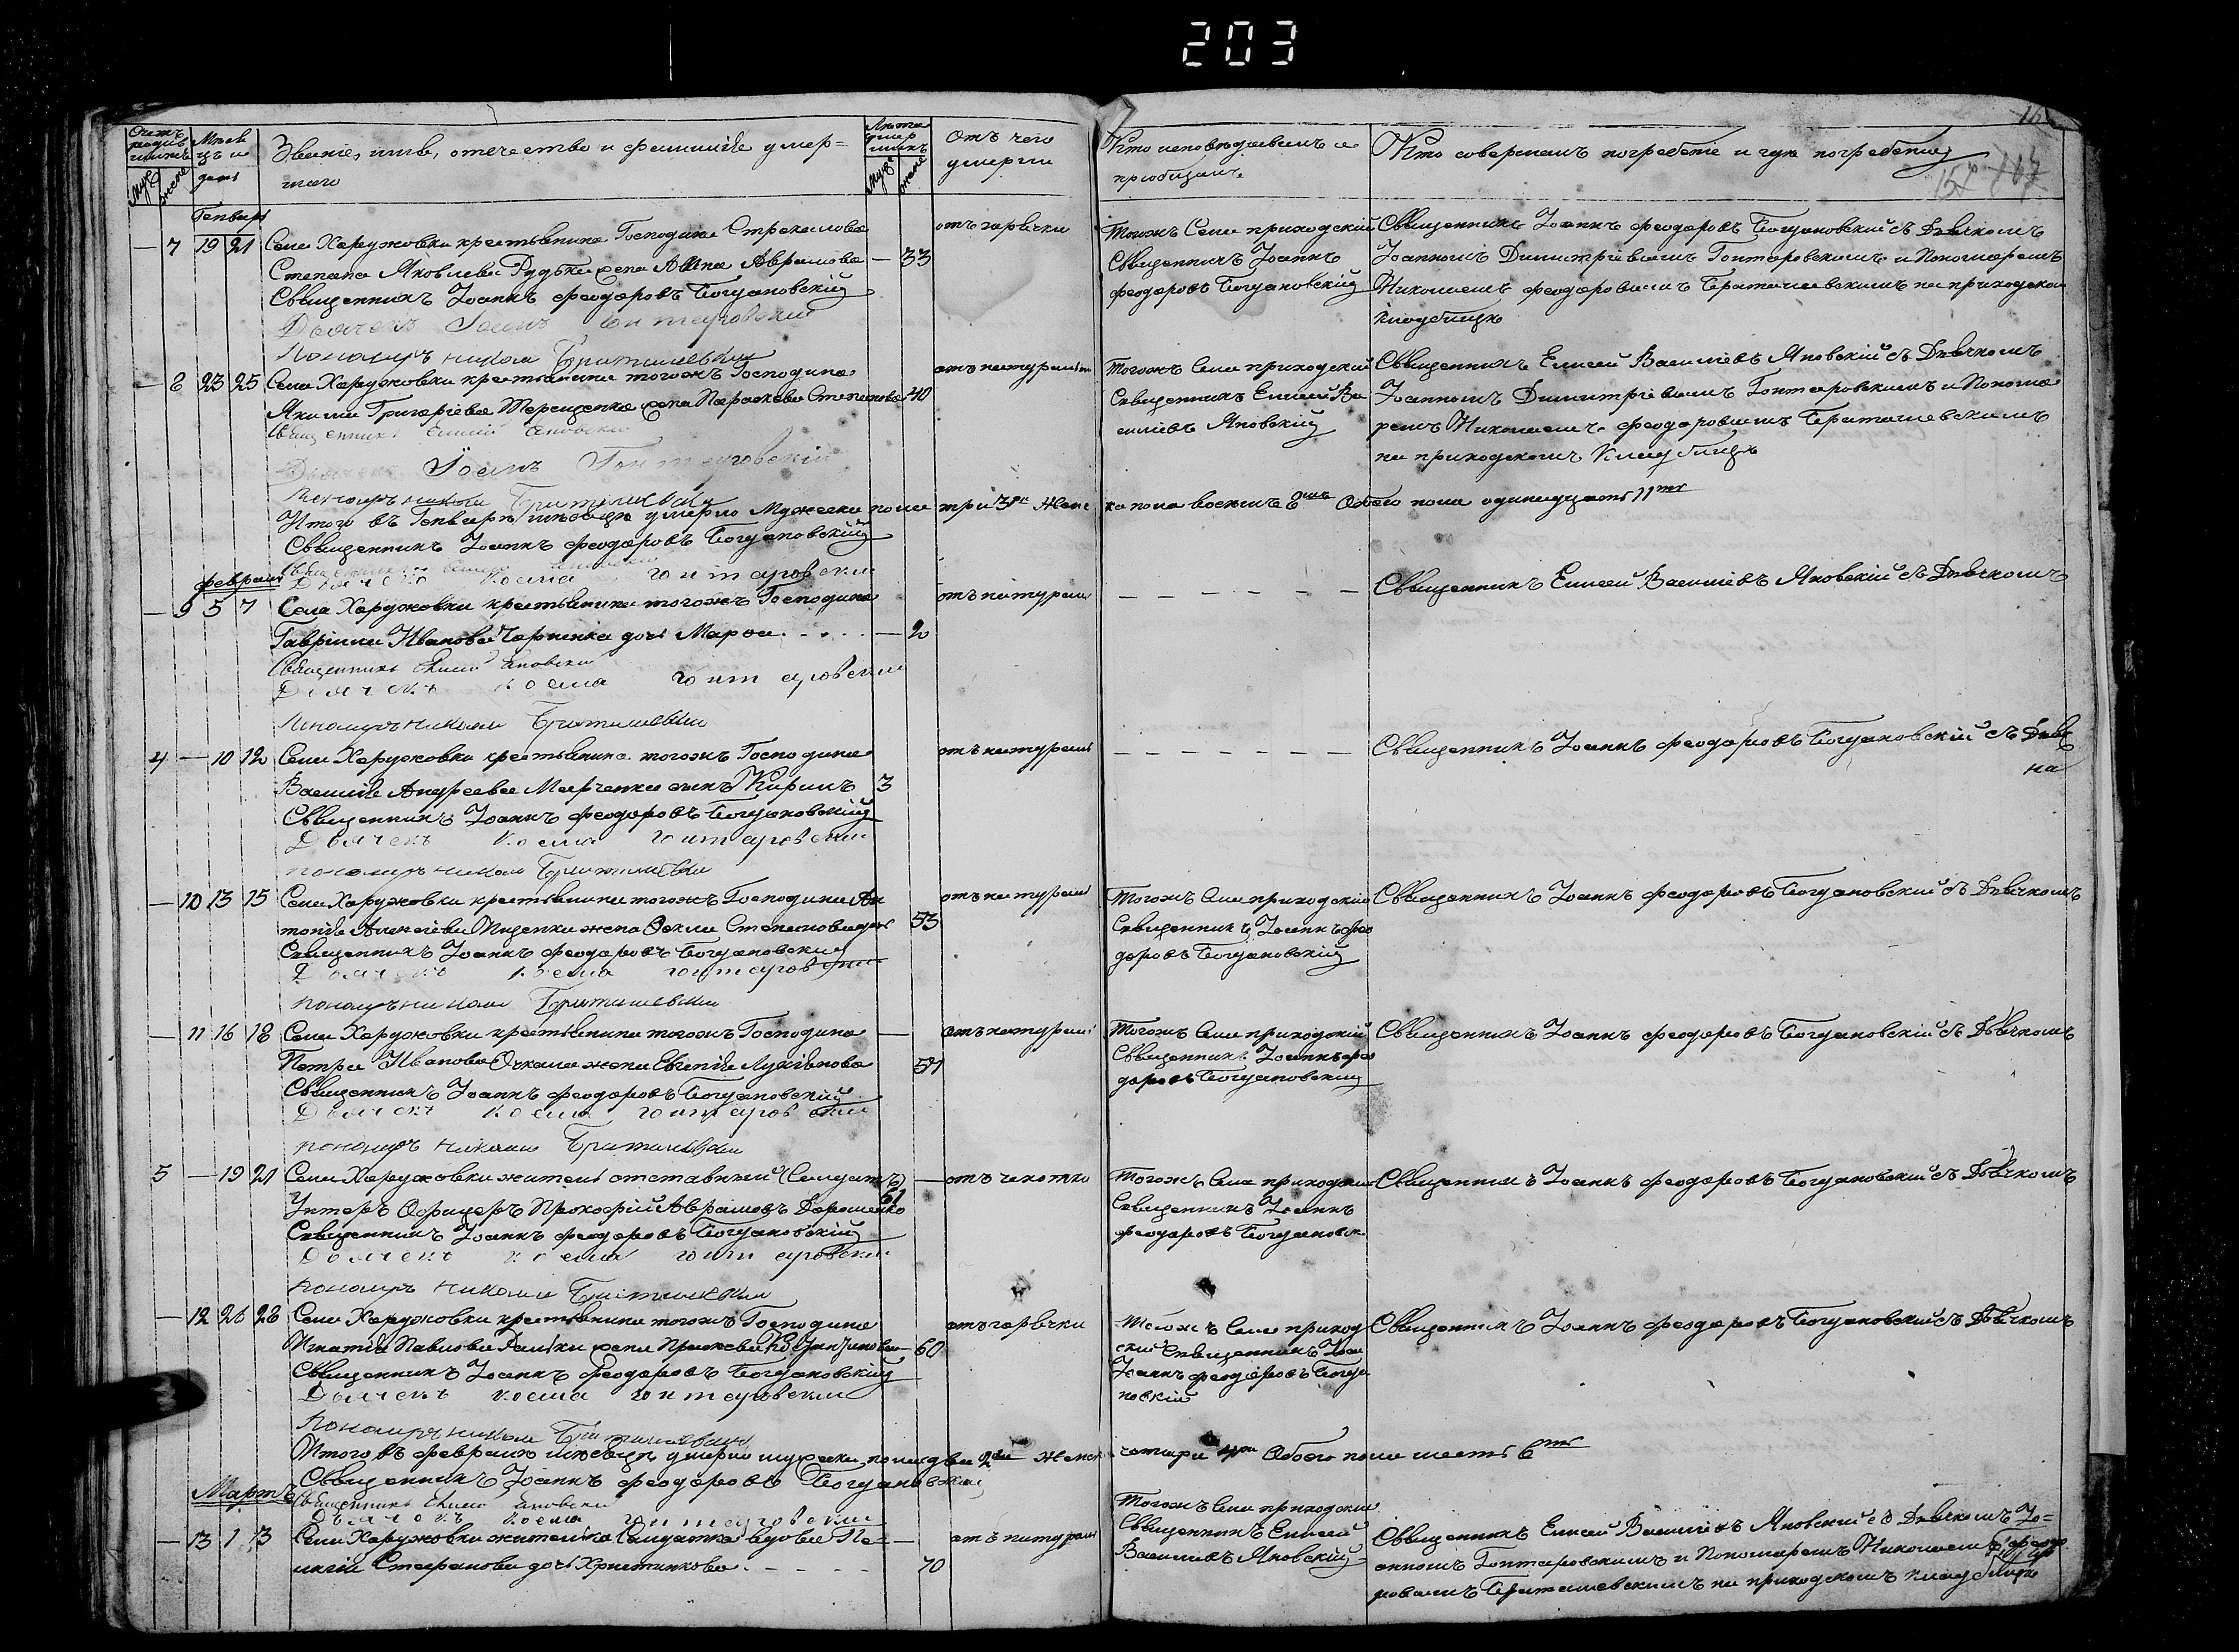 203
Счетъ родив шихъ
Мѣся цъ и день
Званіе, имя, отечество и фамилія умер=
шаго
Лѣта умер шихъ
Отъ чего умерли
Кто исповѣдывалъ и
пріобщалъ
Кто совершалъ погребеніе и гдѣ погребены
муж женс
муж женс
157
Генварь
— 7 19 21 Села Харужовки крестьянина Господина Стрекалова
Степана Яковлева Рудьки жена Анна Аврамова — 33
отъ горячки
Священникъ Іоаннъ Феодоровъ Богдановскій
Дьячекъ Іоанъ Гонтаровскій
Пономаръ Николай Бриташевскій
Тогожъ Села приходскій
Священникъ Іоаннъ
Феодоровъ Богдановскій
Священникъ Іоаннъ Феодоровъ Богдановскій съ Дьячкомъ
Іоанномъ Димитріевымъ Гонтаровскимъ и Пономаремъ
Николаемъ Феодоровымъ Бриташевскимъ на приходском
кладбищѣ
— 8 23 25 Села Харужовки крестьянина тогожъ Господина
Якима Григоріева Терещенка жена Параскева Степанова 40
отъ натурал
Священникъ Елисей Яновскій
Дьячекъ Іоанъ Гонтаровскій
Пономаръ Николай Бриташевскій
Тогожъ Села приходскій
Священникъ Елисей Ва
силіевъ Яновскій
Священникъ Елисей Василіевъ Яновскій съ Дьячкомъ
Іоанномъ Димитріевымъ Гонтаровскимъ и Понома
ремъ Николаемъ Феодоровымъ Бриташевскимъ
на приходскомъ кладбищѣ
Итого въ Генварѣ мѣсяцѣ умерло Мужеска пола три 3 Женс
ка пола восемъ 8 Обоего пола одинадцать 11
Священникъ Іоаннъ Феодоровъ Богдановскій
Священникъ Елисей Яновскій
Дьячекъ Косма Гонтаровскій
Февраль
— 9 5 7 Села Харужовки крестьянина тогожъ Господина
Гавріила Иванова Черненка дочь Марфа — 2
отъ натурали
Священникъ Елисей Яновскій
Дьячекъ Косма Гонтаровскій
Пономаръ Николай Бриташевскій
Священникъ Елисей Василіевъ Яновскій съ Дьячкомъ
4 — 10 12 Села Харужовки крестьянина тогожъ Господина
Василія Андреева Марченка сынъ Кирилъ 3
отъ натурали
Священникъ Іоаннъ Феодоровъ Богдановскій
Дьячекъ Косма Гонтаровскій
Пономаръ Николай Бриташевскій
Священникъ Іоаннъ Феодоровъ Богдановскій съ Дьяч
— 10 13 15 Села Харужовки крестьянина тогожъ Господина Ан
тонія Алексіева Пиценка жена Фекла Степанова 53
отъ натурали
Священникъ Іоаннъ Феодоровъ Богдановскій
Дьячекъ Косма Гонтаровскій
Пономаръ Николай Бриташевскій
Тогожъ Села приходскій
Священникъ Іоаннъ Фео
доровъ Богдановскій
Священникъ Іоаннъ Феодоровъ Богдановскій съ Дьячкомъ
— 11 16 18 Села Харужовки крестьянина тогожъ Господина
Петра Иванова Очкала жена Евгенія Лукіанова 57
отъ натурали
Священникъ Іоаннъ Феодоровъ Богдановскій
Дьячекъ Косма Гонтаровскій
Пономаръ Николай Бриташевскій
Тогожъ Села приходскій
Священникъ Іоаннъ Фео
доровъ Богдановскій
Священникъ Іоаннъ Феодоровъ Богдановскій съ Дьячкомъ
5 — 19 21 Села Харужовки житель отставный (Солдатъ)
Унтеръ Офицеръ Прокофій Аврамовъ Дорошенко 61
отъ чахотки
Священникъ Іоаннъ Феодоровъ Богдановскій
Дьячекъ Косма Гонтаровскій
Пономаръ Николай Бриташевскій
Тогожъ Села приходскій
Священникъ Іоаннъ
Феодоровъ Богдановск
Священникъ Іоаннъ Феодоровъ Богдановскій съ Дьячкомъ
— 12 26 28 Села Харужовки крестьянина тогожъ Господина
Игнатія Павлова жена 60
отъ горячки
Священникъ Іоаннъ Феодоровъ Богдановскій
Дьячекъ Косма Гонтаровскій
Пономаръ Николай Бриташевскій
Тогожъ Села приход
скій Священникъ
Іоаннъ Феодоровъ Богда
новскій
Священникъ Іоаннъ Феодоровъ Богдановскій съ Дьячкомъ
Итого въ Февралѣ мѣсяцѣ умерло мужеска пола два 2 Женск
четыри 4 Обоего пола шесть 6
Священникъ Іоаннъ Феодоровъ Богдановскій
Мартъ
Священникъ Елисей Яновскій
Дьячекъ Косма Гонтаровскій
— 13 1 3 Села Харужовки жителка Солдатка вдова Пе=
лагія Стефанова дочь Христинкова 70
отъ натурали
Тогожъ Села приходскій
Священникъ Елисей
Василіевъ Яновскій
Священникъ Елисей Василіевъ Яновскій съ Дьячкомъ Іо=
анномъ Гонтаровскимъ и Пономаремъ Николаемъ Феодо
ровымъ Бриташевскимъ на приходскомъ кладбищѣ